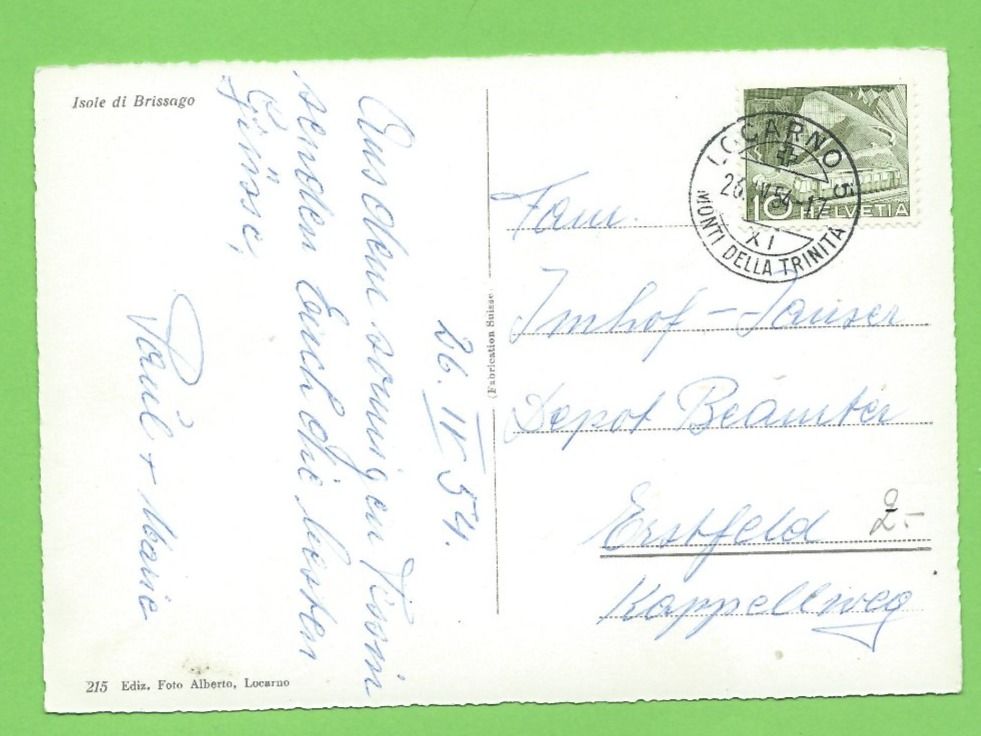 Isole di Brissago
26. IV 54.
Aus dem sonnigen Tessin
senden Euch die besten
Grüsse,
Paul + Marie
215 Ediz. Foto Alberto, Locarno
(Fabrication Suisse)
LOCARNO 5
26.IV.54-17
XI
MONTI DELLA TRINITÀ
10 HELVETIA
Fam.
Imhof - Jauser
Depot Beamter
Erstfeld
Kappellweg
2.-